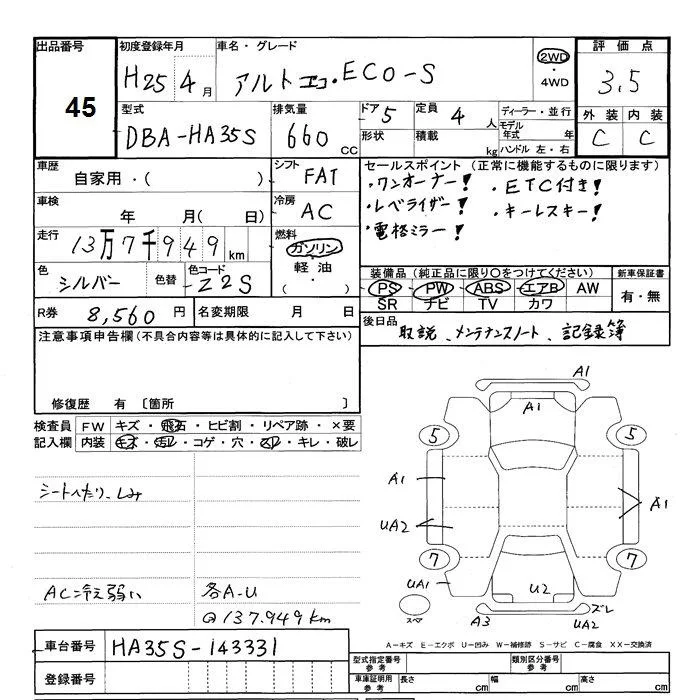 出品番号 初度登録年月 車名・グレード 2WD 評価点
45 H25 4月 アルト エコ・ECO-S ・4WD 3.5
型式 排気量 ドア 5 定員 4人 ディーラー・並行 外装 内装
DBA-HA35S 660cc 形状 積載 kg モデル年式 年 C C
ハンドル 左・右
車歴 自家用・( ) シフト FAT セールスポイント(正常に機能するものに限ります)
・ワンオーナー! ・ETC付き!
車検 年 月(日) 冷房 AC ・レベライザー! ・キーレスキー!
・電格ミラー!
走行 13万7千949km 燃料 ガソリン
軽油
・( )
色 シルバー 色替 色コード Z2S 装備品(純正品に限り○をつけてください) 新車保証書
PS PW ABS エアB AW 有・無
SR ナビ TV カワ
R券 8,560円 名変期限 月 日 後日品 取説、メンテナンスノート、記録簿
注意事項申告欄(不具合内容等は具体的に記入して下さい)
修復歴 有〔箇所 〕
検査員 FW キズ・飛石・ヒビ割・リペア跡・×要
記入欄 内装 キズ・汚レ・コゲ・穴・スレ・キレ・破レ
シートへたり、しみ
AC冷え弱い 各A-U
@137.949km
A1
A1
5 5
A1 A1
UA2
7 7
UA1 U2
スペア A3 ズレ
UA2
A-キズ E-エクボ U-凹み W-補修跡 S-サビ C-腐食 XX-交換済
車台番号 HA35S-143331
登録番号
型式指定番号 参考 類別区分番号 参考
車庫証明用 参考 長さ cm 幅 cm 高さ cm